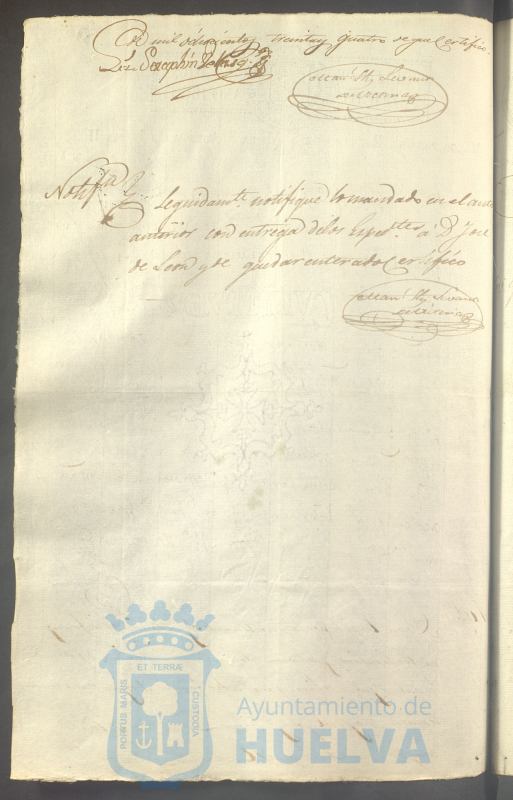 de mil ochocientos treinta y quatro de que certifico
Notif.on
Seguidam.te notifiqué lo mandado en el auto
anterior con entrega de los Exped.tes a D.n José
de Leon y de quedar enterado certifico
ET TERRÆ
PORTUS MARIS
CUSTODIA
Ayuntamiento de
HUELVA